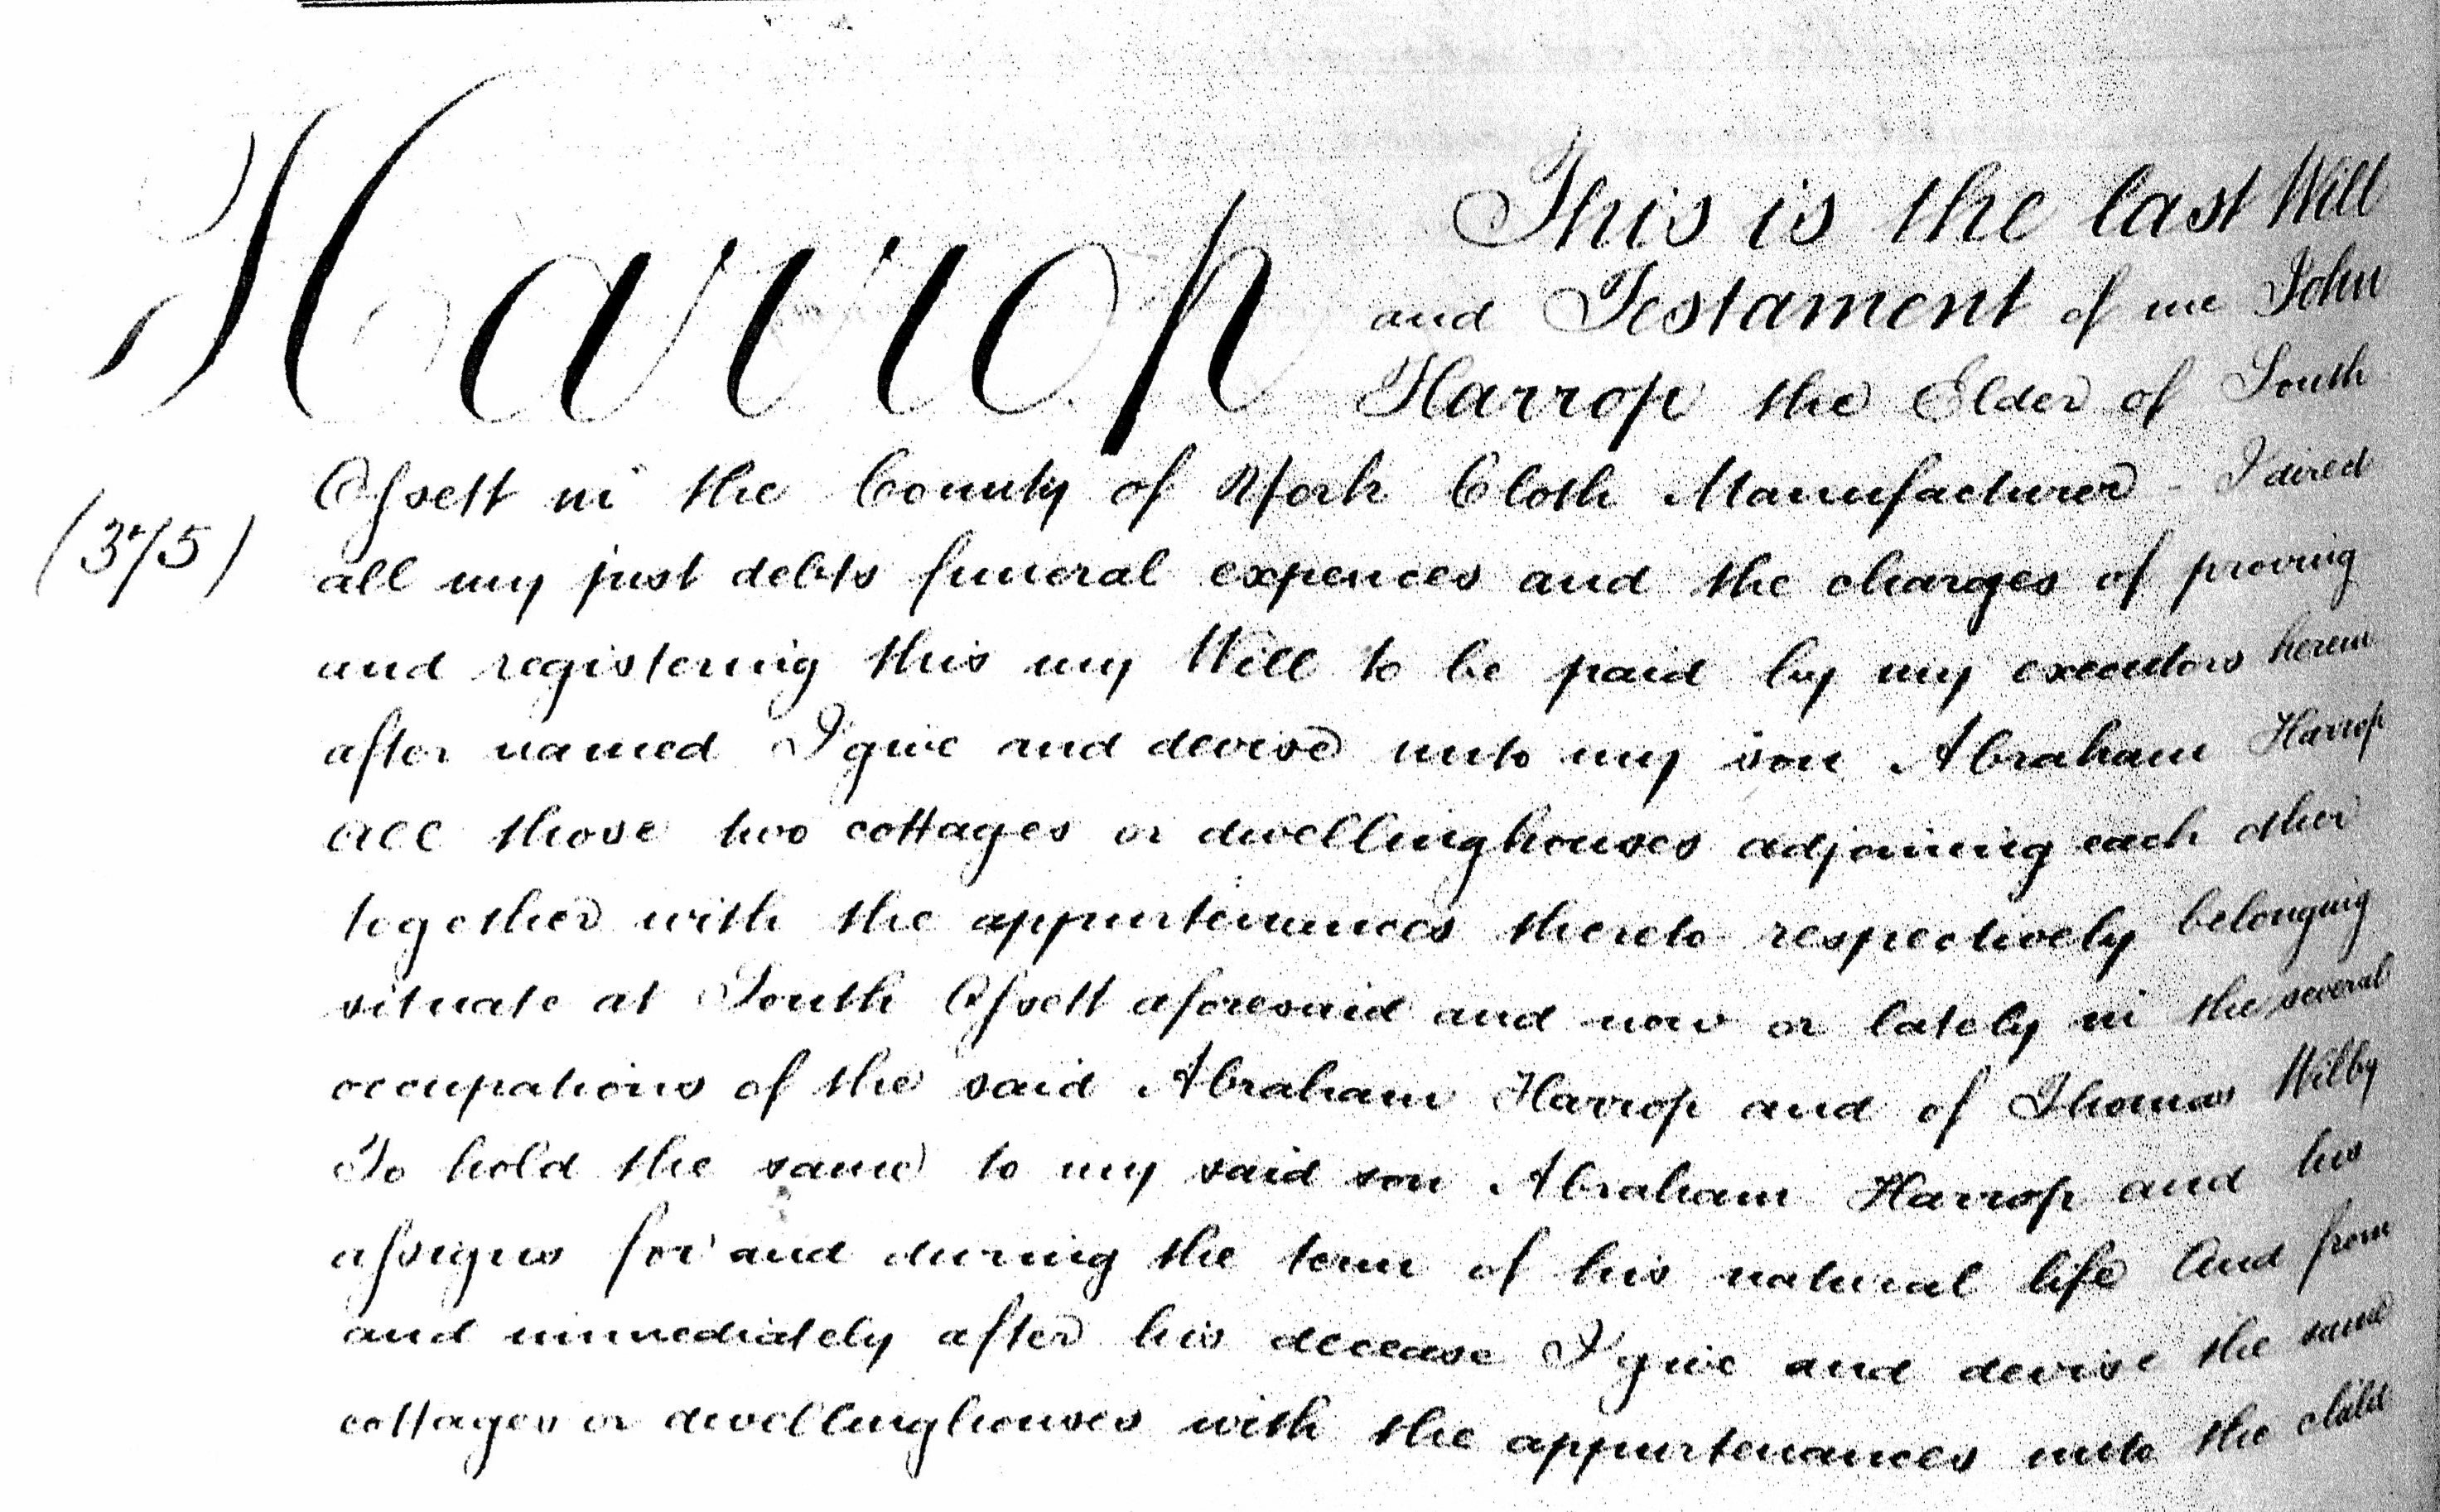 Harrop
This is the last Will
and Testament of me John
Harrop the Elder of South
Ofsett in the County of York Cloth Manufacturer - I direct
(375)
all my just debts funeral expences and the charges of proving
and registering this my Will to be paid by my executors herein
after named I give and devise unto my son Abraham Harrop
All those two cottages or dwellinghouses adjoining each other
together with the appurtenances thereto respectively belonging
situate at South Ofsett aforesaid and now or lately in the several
occupations of the said Abraham Harrop and of Thomas Wilby
To hold the same to my said son Abraham Harrop and his
assigns for and during the term of his natural life And from
and immediately after his decease I give and devise the same
cottages or dwellinghouses with the appurtenances unto the child